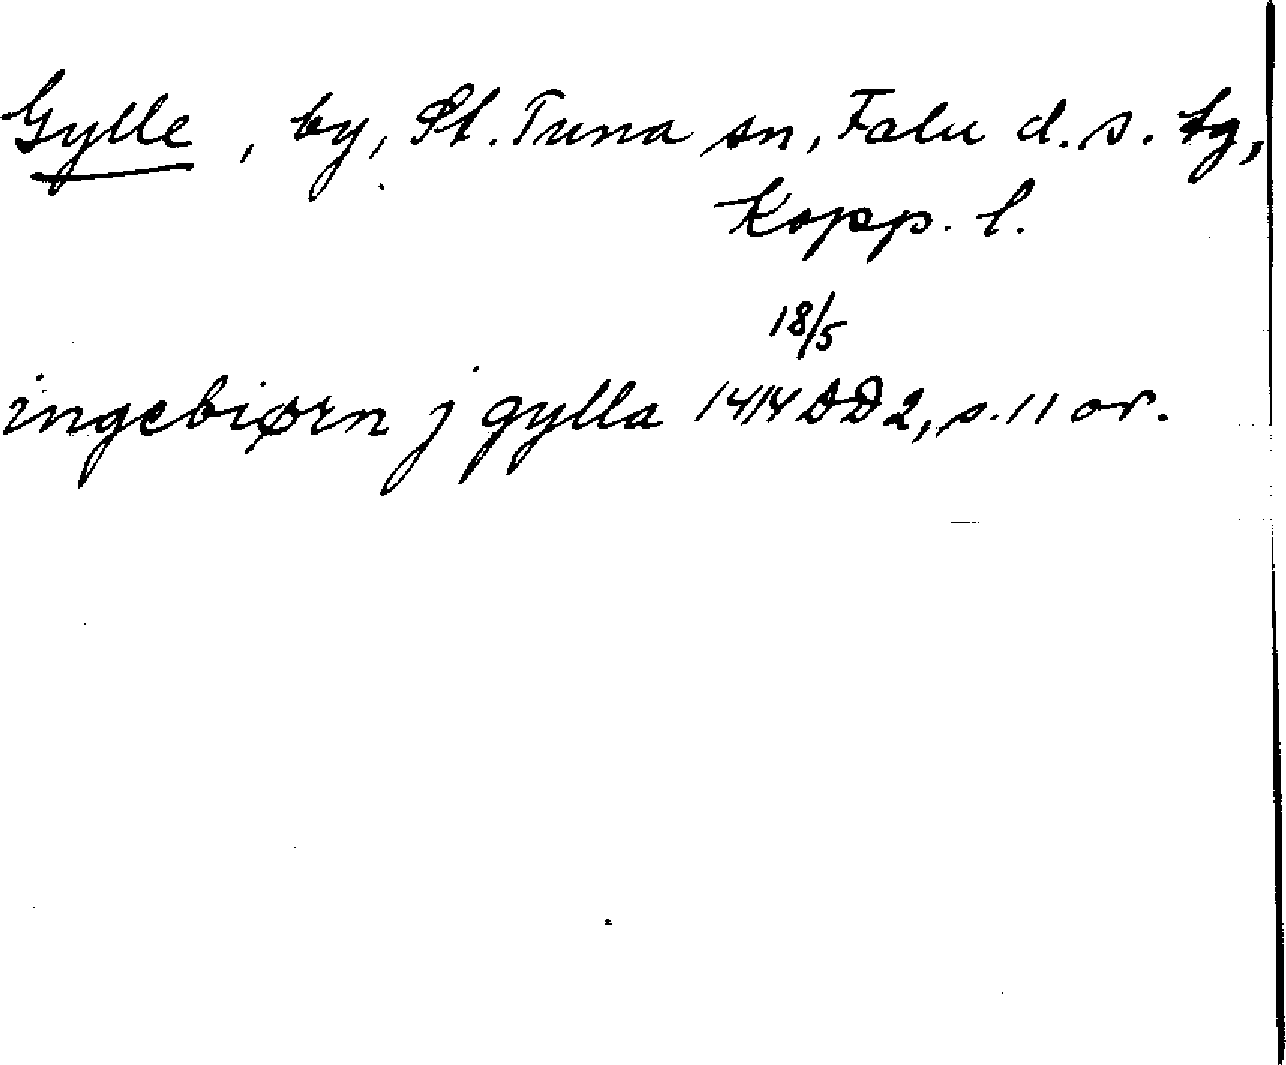 Gylle, by, St. Tuna sn, Falu d. s. tg,
Kopp. l.
18/5
ingebiørn j gylla 1414 DD 2, s. 11 or.